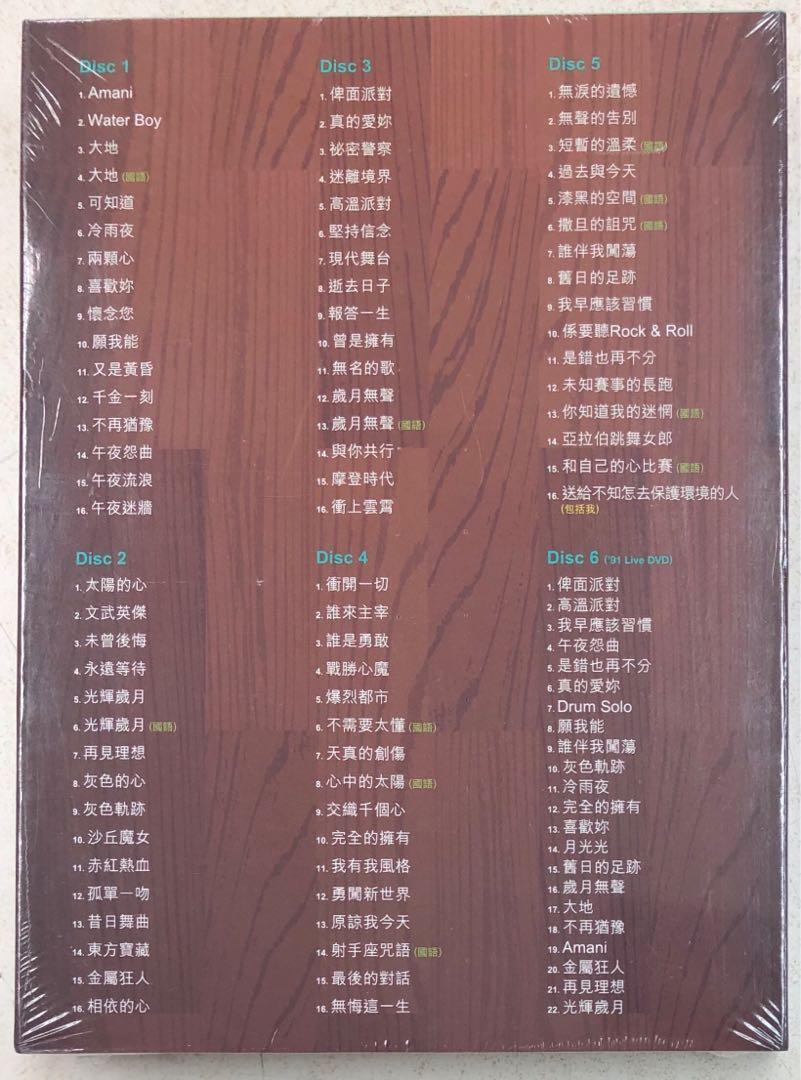 Disc 1
1. Amani
2. Water Boy
3. 大地
4. 大地 (國語)
5. 可知道
6. 冷雨夜
7. 兩顆心
8. 喜歡妳
9. 懷念您
10. 願我能
11. 又是黃昏
12. 千金一刻
13. 不再猶豫
14. 午夜怨曲
15. 午夜流浪
16. 午夜迷牆
Disc 2
1. 太陽的心
2. 文武英傑
3. 未曾後悔
4. 永遠等待
5. 光輝歲月
6. 光輝歲月 (國語)
7. 再見理想
8. 灰色的心
9. 灰色軌跡
10. 沙丘魔女
11. 赤紅熱血
12. 孤單一吻
13. 昔日舞曲
14. 東方寶藏
15. 金屬狂人
16. 相依的心
Disc 3
1. 俾面派對
2. 真的愛妳
3. 祕密警察
4. 迷離境界
5. 高溫派對
6. 堅持信念
7. 現代舞台
8. 逝去日子
9. 報答一生
10. 曾是擁有
11. 無名的歌
12. 歲月無聲
13. 歲月無聲 (國語)
14. 與你共行
15. 摩登時代
16. 衝上雲霄
Disc 4
1. 衝開一切
2. 誰來主宰
3. 誰是勇敢
4. 戰勝心魔
5. 爆烈都市
6. 不需要太懂 (國語)
7. 天真的創傷
8. 心中的太陽 (國語)
9. 交織千個心
10. 完全的擁有
11. 我有我風格
12. 勇闖新世界
13. 原諒我今天
14. 射手座咒語 (國語)
15. 最後的對話
16. 無悔這一生
Disc 5
1. 無淚的遺憾
2. 無聲的告別
3. 短暫的溫柔 (國語)
4. 過去與今天
5. 漆黑的空間 (國語)
6. 撒旦的詛咒 (國語)
7. 誰伴我闖蕩
8. 舊日的足跡
9. 我早應該習慣
10. 係要聽Rock & Roll
11. 是錯也再不分
12. 未知賽事的長跑
13. 你知道我的迷惘 (國語)
14. 亞拉伯跳舞女郎
15. 和自己的心比賽 (國語)
16. 送給不知怎去保護環境的人
(包括我)
Disc 6 ('91 Live DVD)
1. 俾面派對
2. 高溫派對
3. 我早應該習慣
4. 午夜怨曲
5. 是錯也再不分
6. 真的愛妳
7. Drum Solo
8. 願我能
9. 誰伴我闖蕩
10. 灰色軌跡
11. 冷雨夜
12. 完全的擁有
13. 喜歡妳
14. 月光光
15. 舊日的足跡
16. 歲月無聲
17. 大地
18. 不再猶豫
19. Amani
20. 金屬狂人
21. 再見理想
22. 光輝歲月